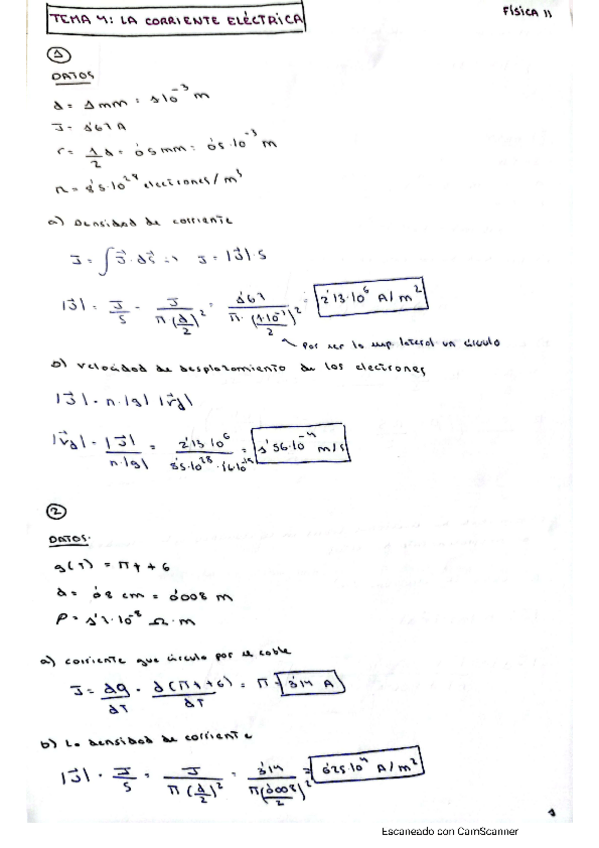 TEMA 4: LA CORRIENTE ELÉCTRICA
FÍSICA II
1
DATOS
d = 1 mm = 1·10⁻³ m
I = 1'67 A
r = 1/2 d = 0'5 mm = 0'5·10⁻³ m
n = 8'5·10²⁸ electrones/m³
a) Densidad de corriente
I = ∫ J⃗ · dS⃗ => I = |J⃗|·S
|J⃗| = I/S = I/(π(d/2)²) = 1'67/(π·(1·10⁻³/2)²) = 2'13·10⁶ A/m²
Por ser la sup. lateral un círculo
b) Velocidad de desplazamiento de los electrones
|J⃗| = n·|q| |v⃗d|
|v⃗d| = |J⃗|/(n·|q|) = 2'13·10⁶/(8'5·10²⁸·1'6·10⁻¹⁹) = 1'56·10⁻⁴ m/s
2
DATOS:
q(T) = πt + 6
d = 0'8 cm = 0'008 m
ρ = 1'7·10⁻⁸ Ω·m
a) corriente que circula por el cable
I = dq/dT = d(πt+6)/dT = π = 3'14 A
b) La densidad de corriente
|J⃗| = I/S = I/(π(d/2)²) = 3'14/(π(0'008/2)²) = 6'25·10⁴ A/m²
1
Escaneado con CamScanner